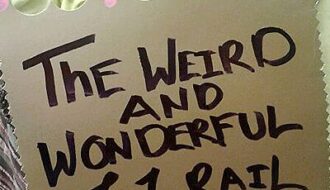 THE WEIRD
AND
WONDERFUL